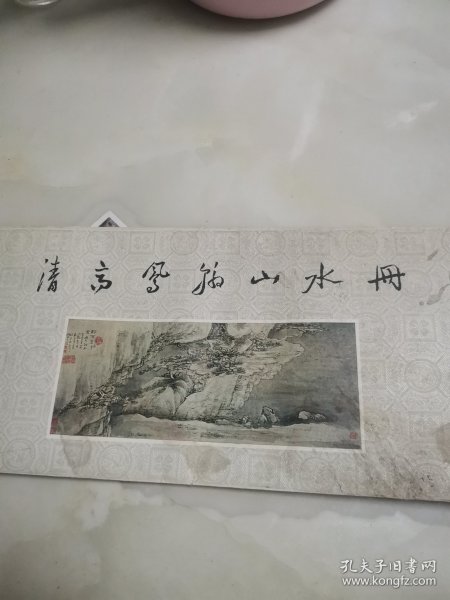 清高凤翰山水册
孔夫子旧书网
www.kongfz.com